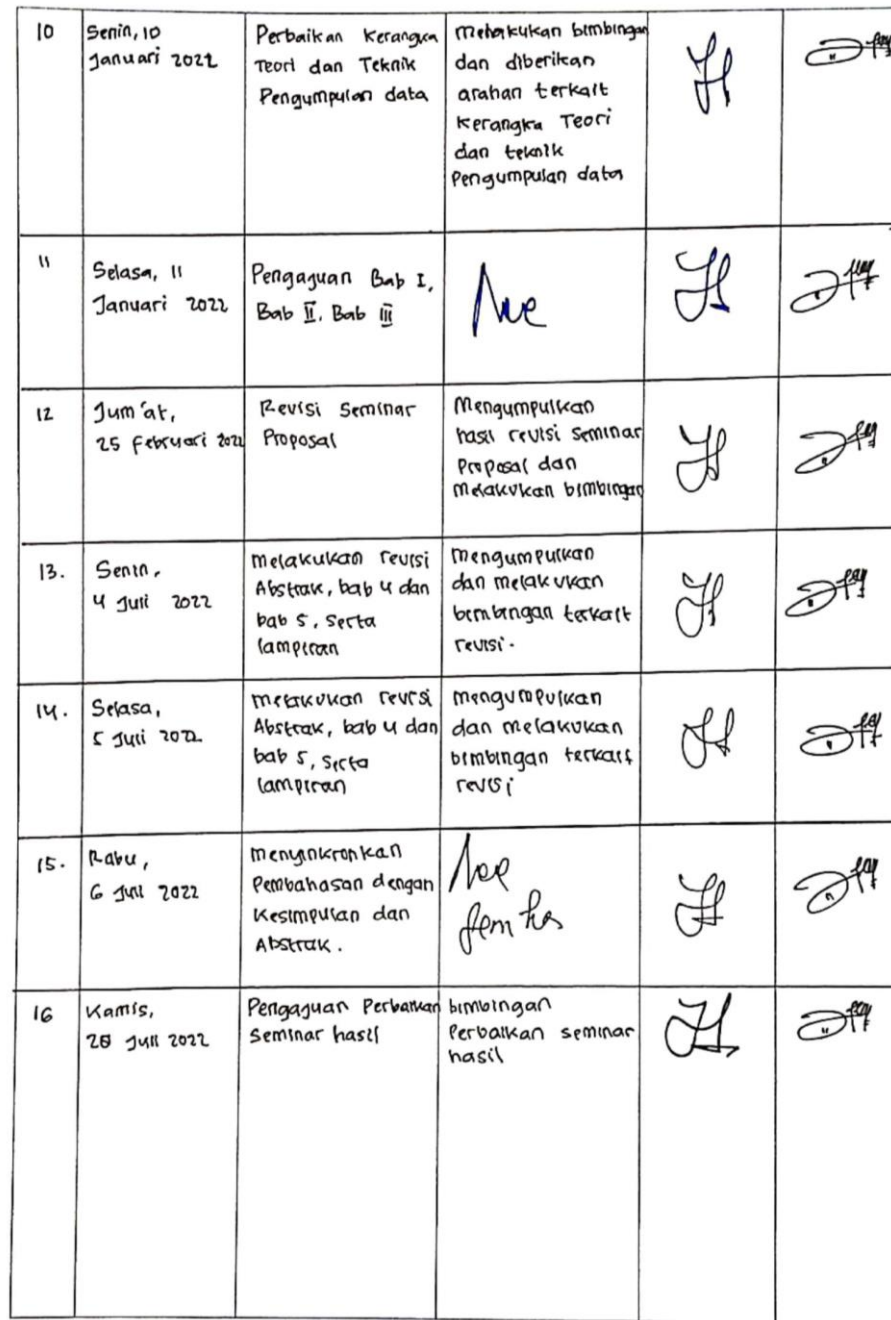 10
Senin, 10
Januari 2022
Perbaikan Kerangka
Teori dan Teknik
Pengumpulan data
Melakukan bimbingan
dan diberikan
arahan terkait
Kerangka Teori
dan teknik
Pengumpulan data
11
Selasa, 11
Januari 2022
Pengajuan Bab I,
Bab II, Bab III
12
Jum'at,
25 Februari 2022
Revisi Seminar
Proposal
Mengumpulkan
hasil revisi seminar
Proposal dan
Melakukan bimbingan
13.
Senin,
4 Juli 2022
Melakukan revisi
Abstrak, bab 4 dan
bab 5, serta
lampiran
Mengumpulkan
dan melakukan
bimbingan terkait
revisi.
14.
Selasa,
5 Juli 2022
Melakukan revisi
Abstrak, bab 4 dan
bab 5, serta
lampiran
Mengumpulkan
dan melakukan
bimbingan terkait
revisi
15.
Rabu,
6 Juli 2022
Menyinkronkan
Pembahasan dengan
Kesimpulan dan
Abstrak.
16
Kamis,
28 Juli 2022
Pengajuan Perbaikan
Seminar hasil
bimbingan
Perbaikan seminar
hasil